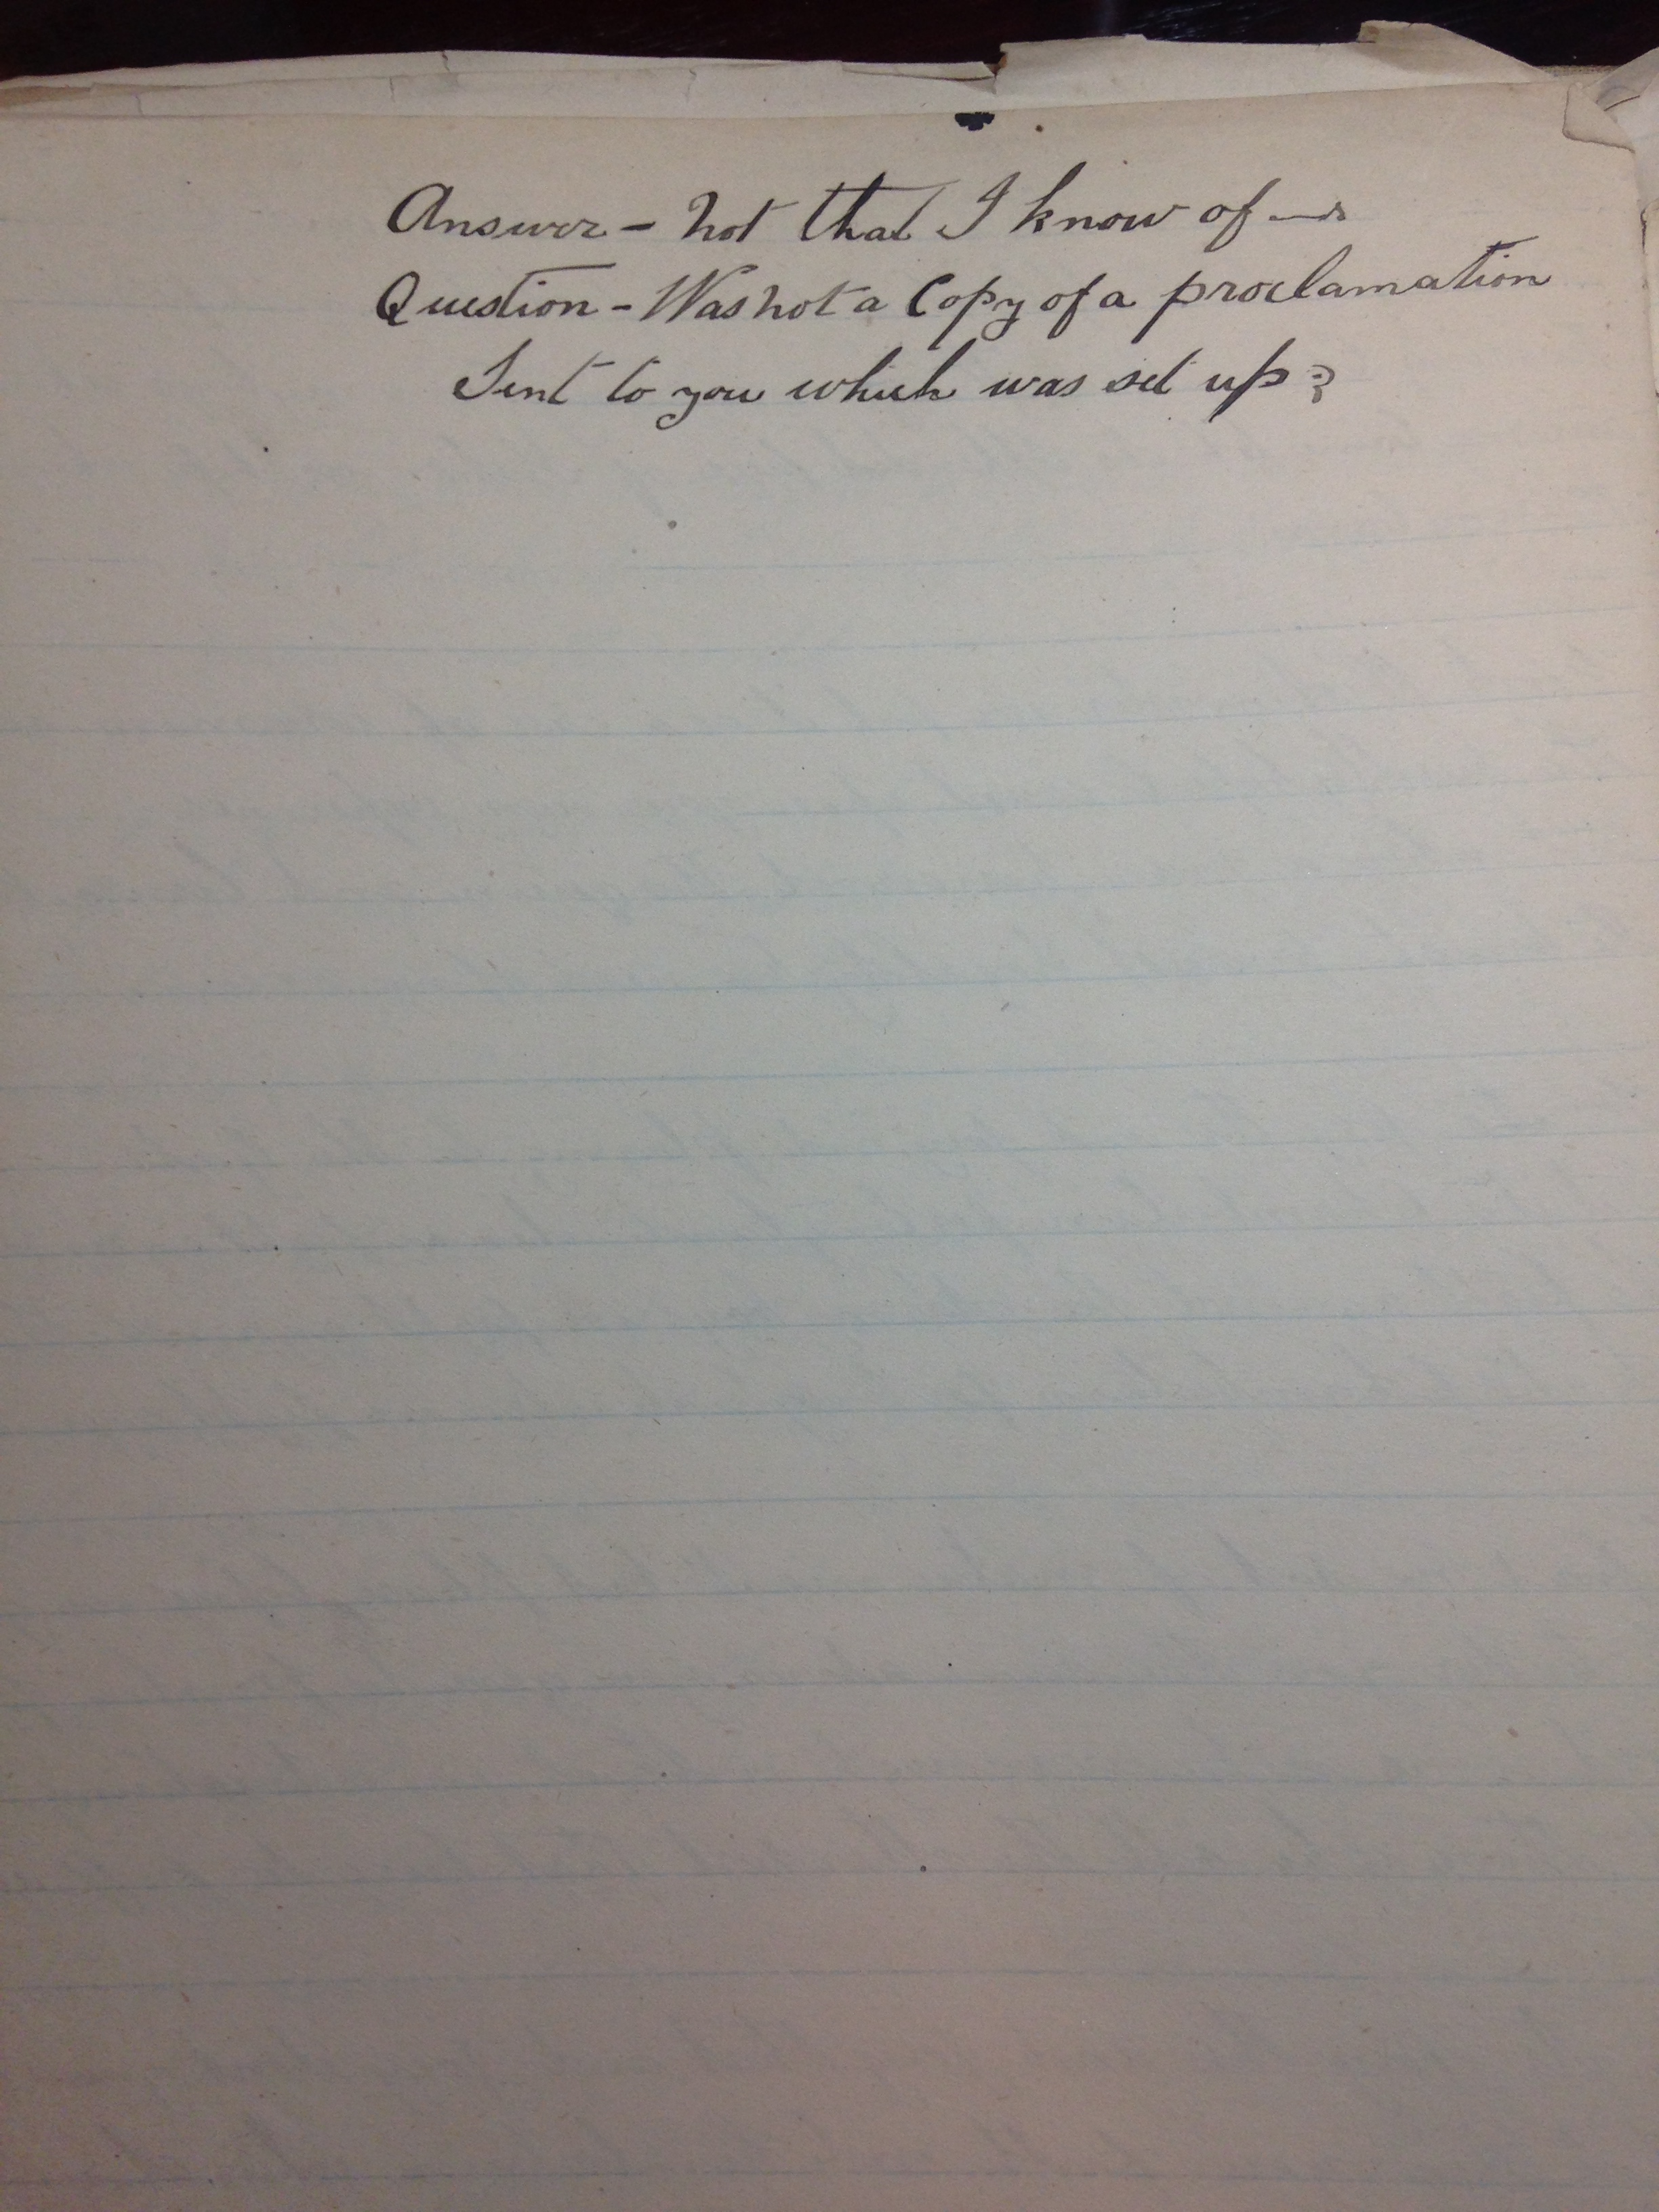 Answer - not that I know of —
Question - Was not a Copy of a proclamation
Sent to you which was set up?